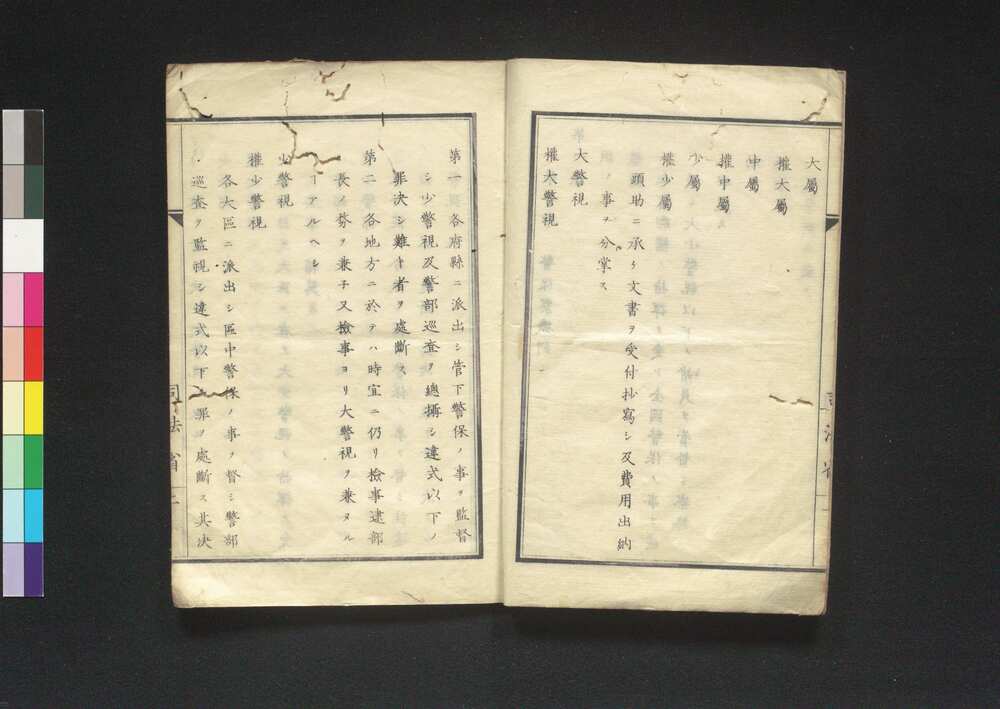 大屬
權大屬
中屬
權中屬
少屬
權少屬
頭助ニ承ケ文書ヲ受付抄寫シ及費用出納
ノ事ヲ分掌ス
大警視
權大警視
第一各府縣ニ派出シ管下警保ノ事ヲ監督
シ少警視及警部巡査ヲ總攝シ違式以下ノ
罪決シ難キ者ヲ處斷ス
第二各地方ニ於テハ時宜ニ仍リ檢事逮部
長ノ務ヲ兼子又檢事ヨリ大警視ヲ兼ヌル
アルヘシ
少警視
權少警視
各大區ニ派出シ區中警保ノ事ヲ督シ警部
巡査ヲ監視シ違式以下ノ罪ヲ處斷ス其決
司法省